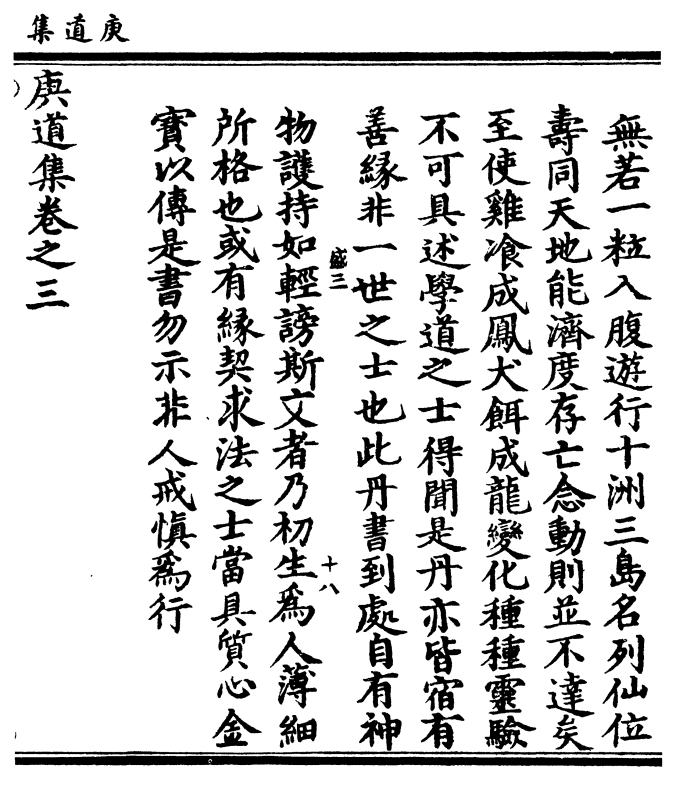 庚道集
無若一粒入腹遊行十洲三島名列仙位
壽同天地能濟度存亡念動則並不達矣
至使雞飡成鳳犬餌成龍變化種種靈驗
不可具述學道之士得聞是丹亦皆宿有
善緣非一世之士也此丹書到處自有神
盛三
十八
物護持如輕謗斯文者乃初生爲人薄細
所格也或有緣契求法之士當具質心金
寶以傳是書勿示非人戒慎爲行
庚道集卷之三